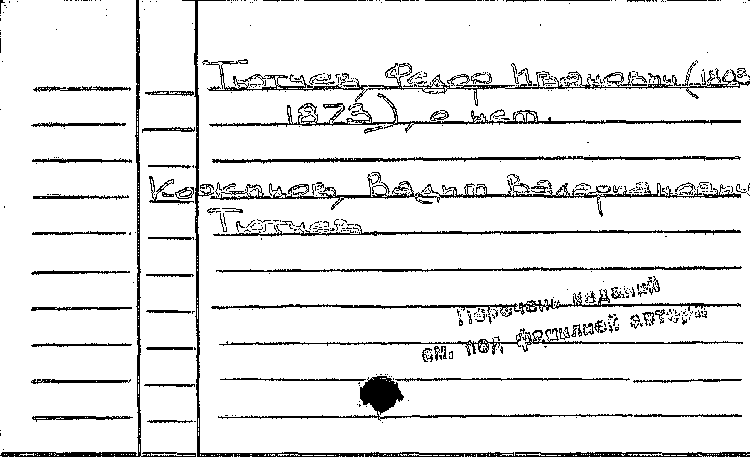 Тютчев, Федор Иванович (1803
1873), о нем.
Кожинов, Вадим Валерианович
Тютчев
Перечень изданий
см. под фамилией автора